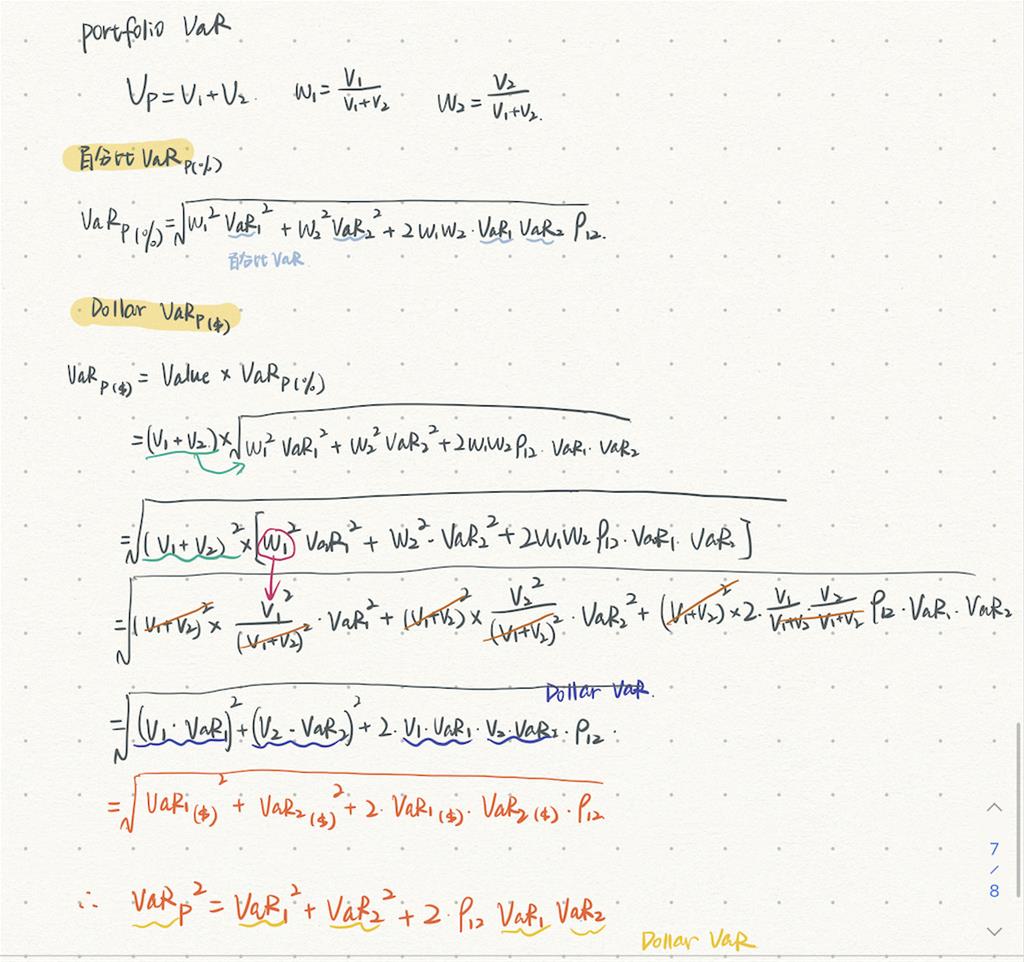 portfolio VaR
V_P = V_1 + V_2. W_1 = V_1/(V_1+V_2) W_2 = V_2/(V_1+V_2).
百分比 VaR_P(%)
VaR_P(%) = √(W_1² VaR_1² + W_2² VaR_2² + 2 W_1 W_2 · VaR_1 VaR_2 ρ_12.
百分比 VaR
Dollar VaR_P($)
VaR_P($) = Value × VaR_P(%)
= (V_1 + V_2) × √(W_1² VaR_1² + W_2² VaR_2² + 2 W_1 W_2 ρ_12 · VaR_1 · VaR_2)
= √((V_1 + V_2)² × [W_1² VaR_1² + W_2² · VaR_2² + 2 W_1 W_2 ρ_12 · VaR_1 · VaR_2])
= √((V_1+V_2)² × V_1²/(V_1+V_2)² · VaR_1² + (V_1+V_2)² × V_2²/(V_1+V_2)² · VaR_2² + (V_1+V_2)² × 2 · V_1/(V_1+V_2) · V_2/(V_1+V_2) ρ_12 · VaR_1 · VaR_2)
Dollar VaR.
= √((V_1 · VaR_1)² + (V_2 · VaR_2)² + 2 · V_1 · VaR_1 · V_2 · VaR_2 · ρ_12 .
= √(VaR_1($)² + VaR_2($)² + 2 · VaR_1($) · VaR_2($) · ρ_12)
∴ VaR_P² = VaR_1² + VaR_2² + 2 · ρ_12 VaR_1 VaR_2
Dollar VaR
7
/
8